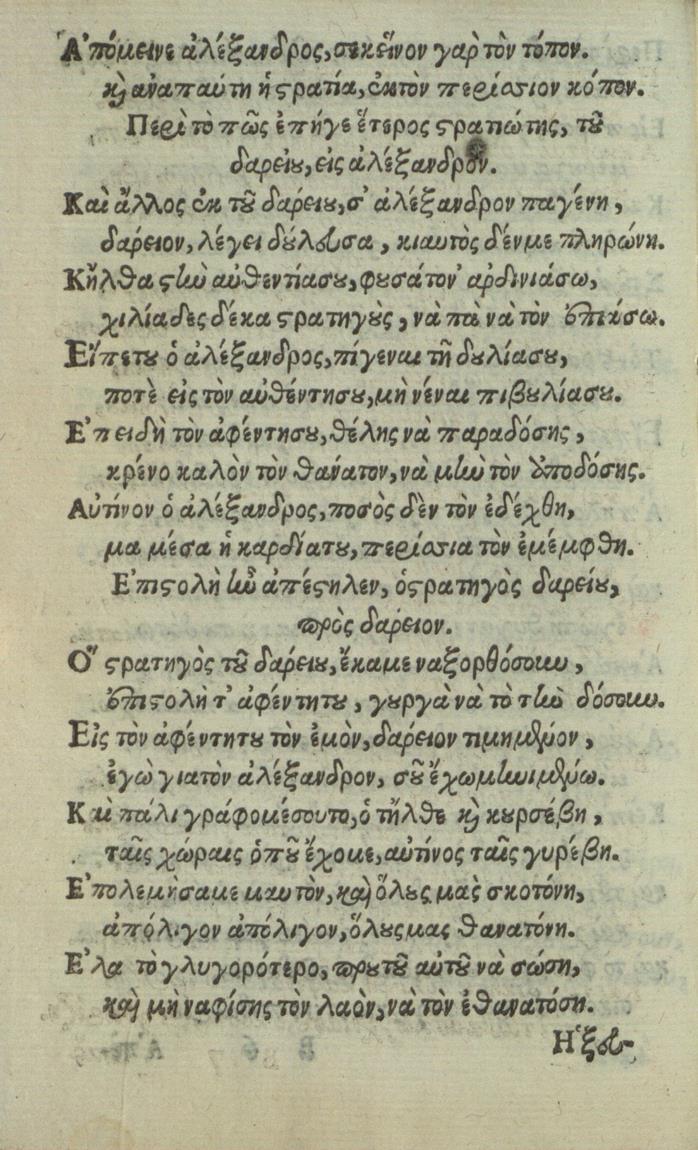 Ἀπόμεινε ἀλέξανδρος, σεκεῖνον γὰρ τὸν τόπον.
κὶ ἀναπαύτη ἡ στρατία, ἐκτὸν περίσσιον κόπον.
Περὶ τὸ πῶς ἐπήγε ἕτερος στρατιώτης, τοῦ
δαρείου, εἰς ἀλέξανδρον.
Καὶ ἄλλος ἐκ τοῦ δαρείου, σ' ἀλέξανδρον παγένη,
δαρειον, λέγει δούλευσα, κιαυτὸς δένμε πληρώνη.
Κῆλθα στὴν αὐθεντίασου, φουσάτον' αρδινιάσω,
χιλίαδες δέκα στρατηγοὺς, νὰ πὰ νὰ τὸν ἐπιάσω.
Εἴπετου ὁ ἀλέξανδρος, πίγεναι τῆ δουλίασου,
ποτὲ εἰς τὸν αὐθέντησου, μὴ νέναι πιβουλίασου.
Ἐπειδὴ τὸν ἀφέντησου, θέλης νὰ παραδόσης,
κρένο καλὸν τὸν θάνατον, νὰ μὴν τὸν ὑποδόσης.
Αὐτίνον ὁ ἀλέξανδρος, ποσὸς δὲν τὸν ἐδέχθη,
μα μέσα ἡ καρδίατου, περίσσια τὸν ἐμέμφθη.
Ἐπιστολὴ ἣν ἀπέστηλεν, ὁ στρατηγὸς δαρείου,
πρὸς δαρειον.
Ὁ στρατηγὸς τοῦ δαρείου, ἔκαμε ναξορθόσουν,
ἐπιστολὴ τ' ἀφέντητου, γουργὰ νὰ τὸ τὴν δόσουν.
Εἰς τὸν ἀφέντητου τὸν ἐμὸν, δάρειον τιμημένον,
ἐγὼ γιατὸν ἀλέξανδρον, σοῦ ἔχω μηνιμένω.
Καὶ πάλι γράφομέσουτο, ὁ τῆλθε κὶ κουρσέβη,
ταῖς χώραις ὁποῦ ἔχομε, αὐτίνος ταῖς γυρέβη.
Ἐπολεμήσαμε μαυτὸν, καὶ ὅλους μὰς σκοτόνη,
ἀπόλιγον ἀπόλιγον, ὅλους μας θανατόνη.
Ἔλα τὸ γλυγορότερο, πρυτοῦ αὐτοῦ νὰ σώση,
καὶ μὴ ναφίσης τὸν λαὸν, νὰ τὸν ἐθανατόση.
Ἡ ἐξευ-